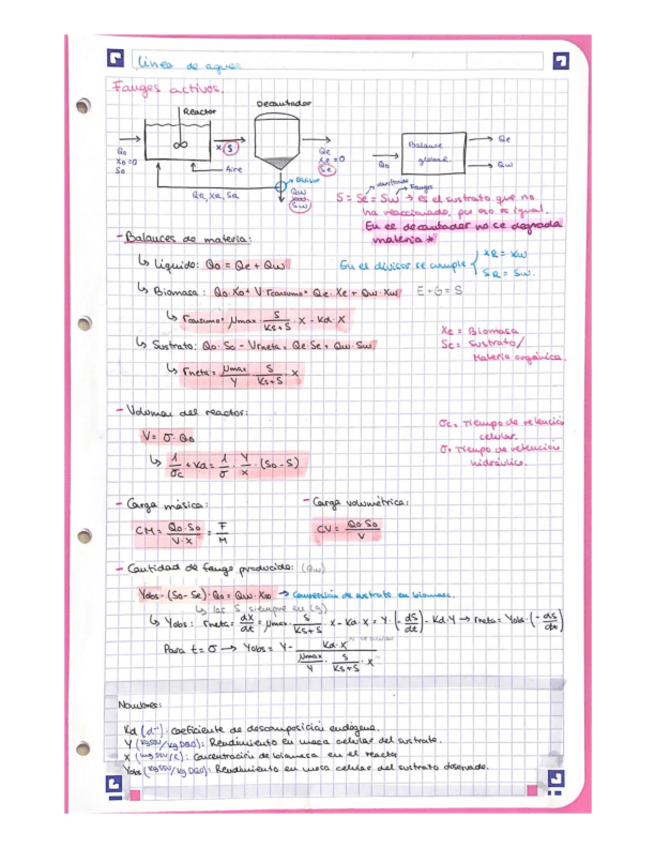 Línea de aguas
Fangos activos.
Reactor
Decantador
Q0
X0=0
S0
X, S
Aire
Qe
Xe=0
Se
Divisor
Qw
Xw
Sw
QR, XR, SR
Balance
global
Q0
Qe
Qw
decantador
Fangos
S = Se = Sw → es el sustrato que no
ha reaccionado, por eso es igual.
En el decantador no se degrada
materia *
- Balances de materia:
↳ Líquido: Q0 = Qe + Qw
En el divisor se cumple { XR = Xw
SR = Sw.
↳ Biomasa: Q0·X0 + V·rconsumo = Qe·Xe + Qw·Xw
E+G=S
↳ rconsumo = μmax · S/(Ks+S) · X - Kd·X
↳ Sustrato: Q0·S0 - V·rneta = Qe·Se + Qw·Sw
↳ rneta = μmax/Y · S/(Ks+S) · X
Xe = Biomasa
Se = Sustrato/
Materia orgánica.
- Volumen del reactor:
V = σ·Q0
↳ 1/σc + Kd = 1/σ · Y/X · (S0-S)
σc = Tiempo de retención
celular.
σ = Tiempo de retención
hidráulico.
- Carga másica:
CM = Q0·S0/V·X = F/M
- Carga volumétrica:
CV = Q0·S0/V
- Cantidad de fango producido: (Qw)
Yobs·(S0-Se)·Q0 = Qw·Xw → Conversión de sustrato en biomasa.
↳ las S siempre en (g)
↳ Yobs: rneta = dX/dt = μmax · S/(Ks+S) · X - Kd·X = Y·(-dS/dt) - Kd·Y → rneta = Yobs·(-dS/dt)
Para t=σ → Yobs = Y - Kd·X / (μmax/Y · S/(Ks+S) · X)
Nombres:
Kd (d⁻¹): Coeficiente de descomposición endógena.
Y (kgSSV/kgDBO): Rendimiento en masa celular del sustrato.
X (mgSSV/L): Concentración de biomasa en el reactor
Yobs (kgSSV/kgDBO): Rendimiento en masa celular del sustrato observado.